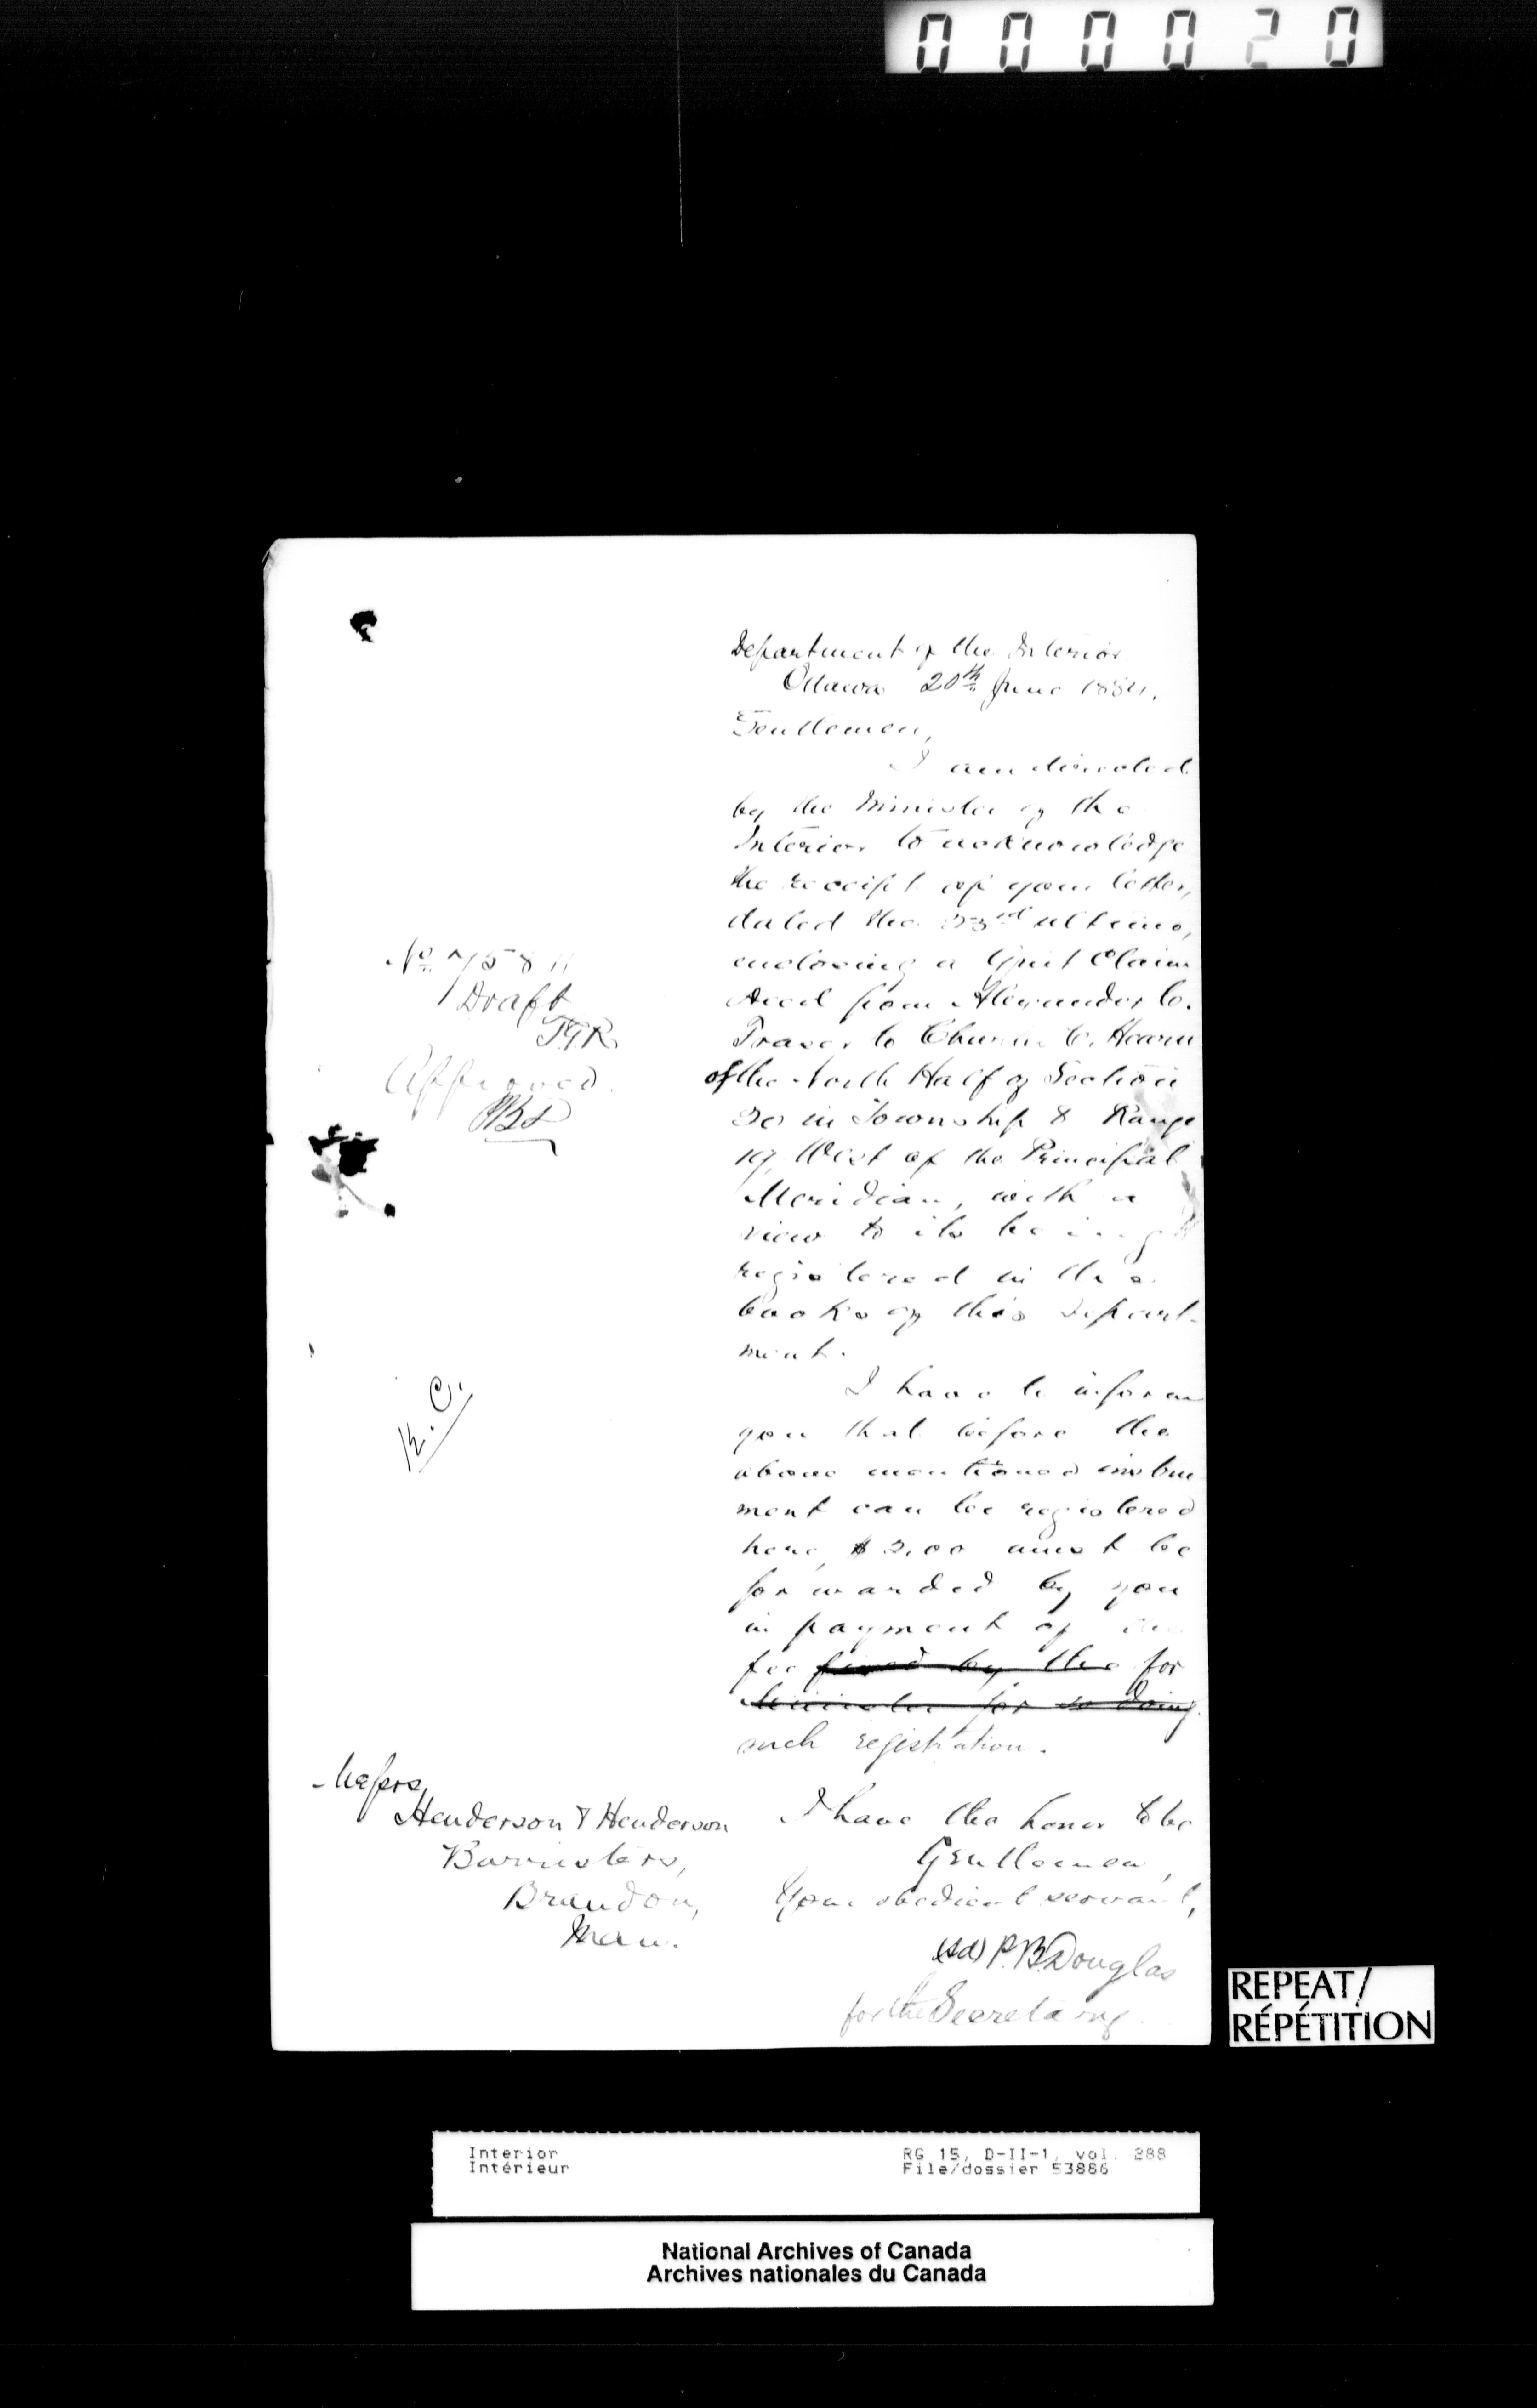 000020
Department of the Interior
Ottawa 20th June 1884.
Gentlemen,
I am directed
by the Minister of the
Interior to acknowledge
the receipt of your letter,
dated the 23rd ultimo,
enclosing a Quit Claim
Deed from Alexander C.
Fraser to C. Hearn
of the North Half of Section
in Township 8 Range
19, West of the Principal
Meridian, with a
view to its being
registered in the
books of this Depart-
ment.
I have to inform
you that before the
above mentioned instru
ment can be registered
here, $2.00 must be
forwarded by you
in payment of the
fee fixed by the for
Minister for so doing.
such registration.
I have the honor to be
Gentlemen,
Your obedient servant,
(sd) P.B. Douglas
for the Secretary.
No 75811
Draft
Approved.
Messrs,
Henderson & Henderson
Barristers,
Brandon,
Man.
REPEAT/
RÉPÉTITION
Interior
Intérieur
RG 15, D-II-1, vol. 288
File/dossier 53886
National Archives of Canada
Archives nationales du Canada